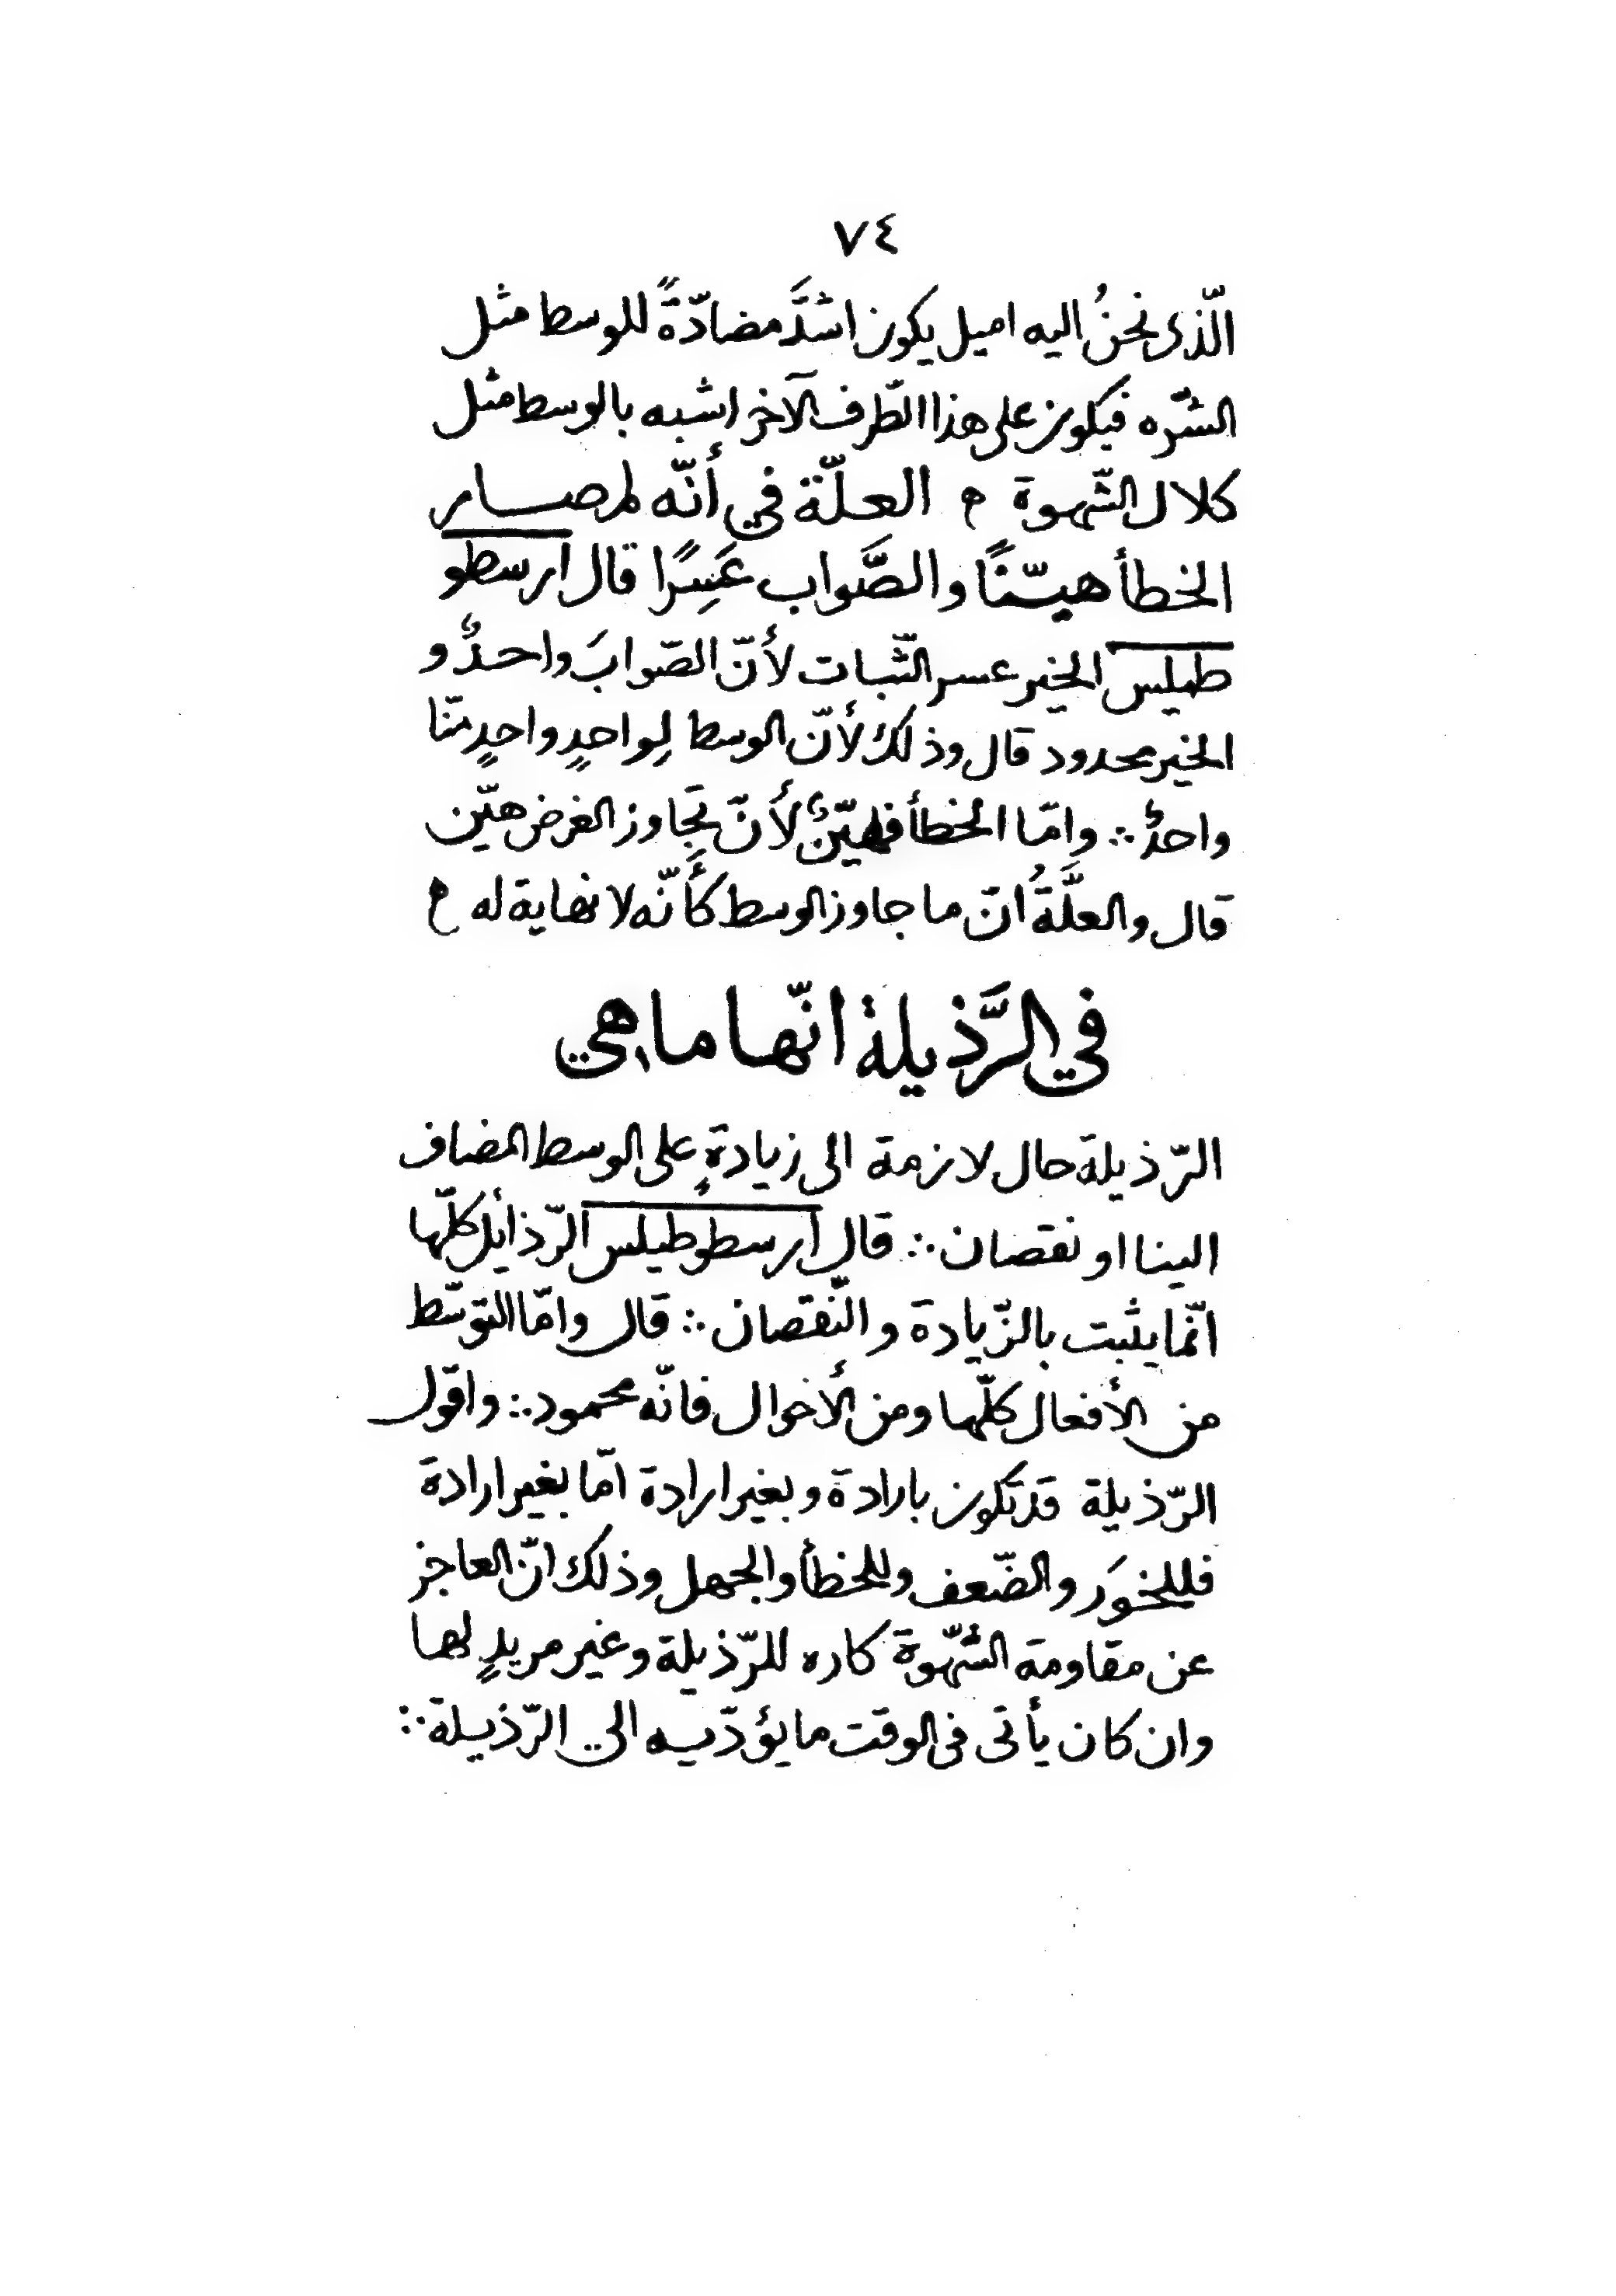 ٧٤
الّذى نحنُ اليه اميل يكون اشدَّ مضادّةً للوسط مثل
الشّره فيكون على هذا الطّرف الآخر اشبه بالوسط مثل
كلال الشّهوة م العلّة في أنّه لم صار
الخطأ هيّنًا والصَّواب عَسِرًا قال ارسطو
طيلس الخير عسر الثّبات لأنّ الصّوابَ واحدٌ و
الخير محدود قال وذلك لأنّ الوسط لِواحدٍ واحدٍ منّا
واحدٌ ∴ وامّا الخطأ فهيّنٌ لأنّ تجاوز الغرض هيّن
قال والعلَّةُ انّ ما جاوز الوسط كأنّه لا نهاية له م
في الرَّذيلة انّها ما هي
الرّذيلة حال لازمة الى زيادةٍ على الوسط المضاف
الينا او نقصان ∴ قال ارسطوطيلس الرّذائل كلّها
انّما يثبت بالزّيادة والنّقصان ∴ قال وامّا التوسّط
من الأفعال كلّها ومن الأحوال فانّه محمود ∴ واقول
الرّذيلة قد تكون بارادة وبغير ارادة امّا بغير ارادة
فللخوَر والضّعف وللخطأ والجهل وذلك انّ العاجز
عن مقاومة الشّهوة كاره للرّذيلة وغير مريدٍ لها
وان كان يأتى فى الوقت ما يؤدّيه الى الرّذيلة ∴